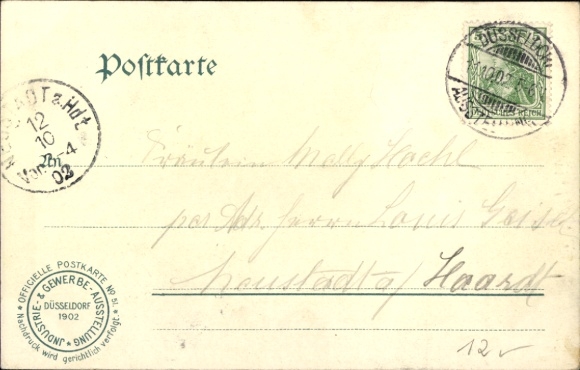 Postkarte
DÜSSELDORF
AUSSTELLUNG
DEUTSCHES REICH
NEUSTADT a. Hdt
12
10
Vor. -4
02
An
Fräulein Molly Hoehl
per Adr. Herrn Louis Geisel
Neustadt a/ Haardt
OFFICIELLE POSTKARTE No 51.
INDUSTRIE- & GEWERBE-AUSSTELLUNG
DÜSSELDORF
1902
Nachdruck wird gerichtlich verfolgt.
12